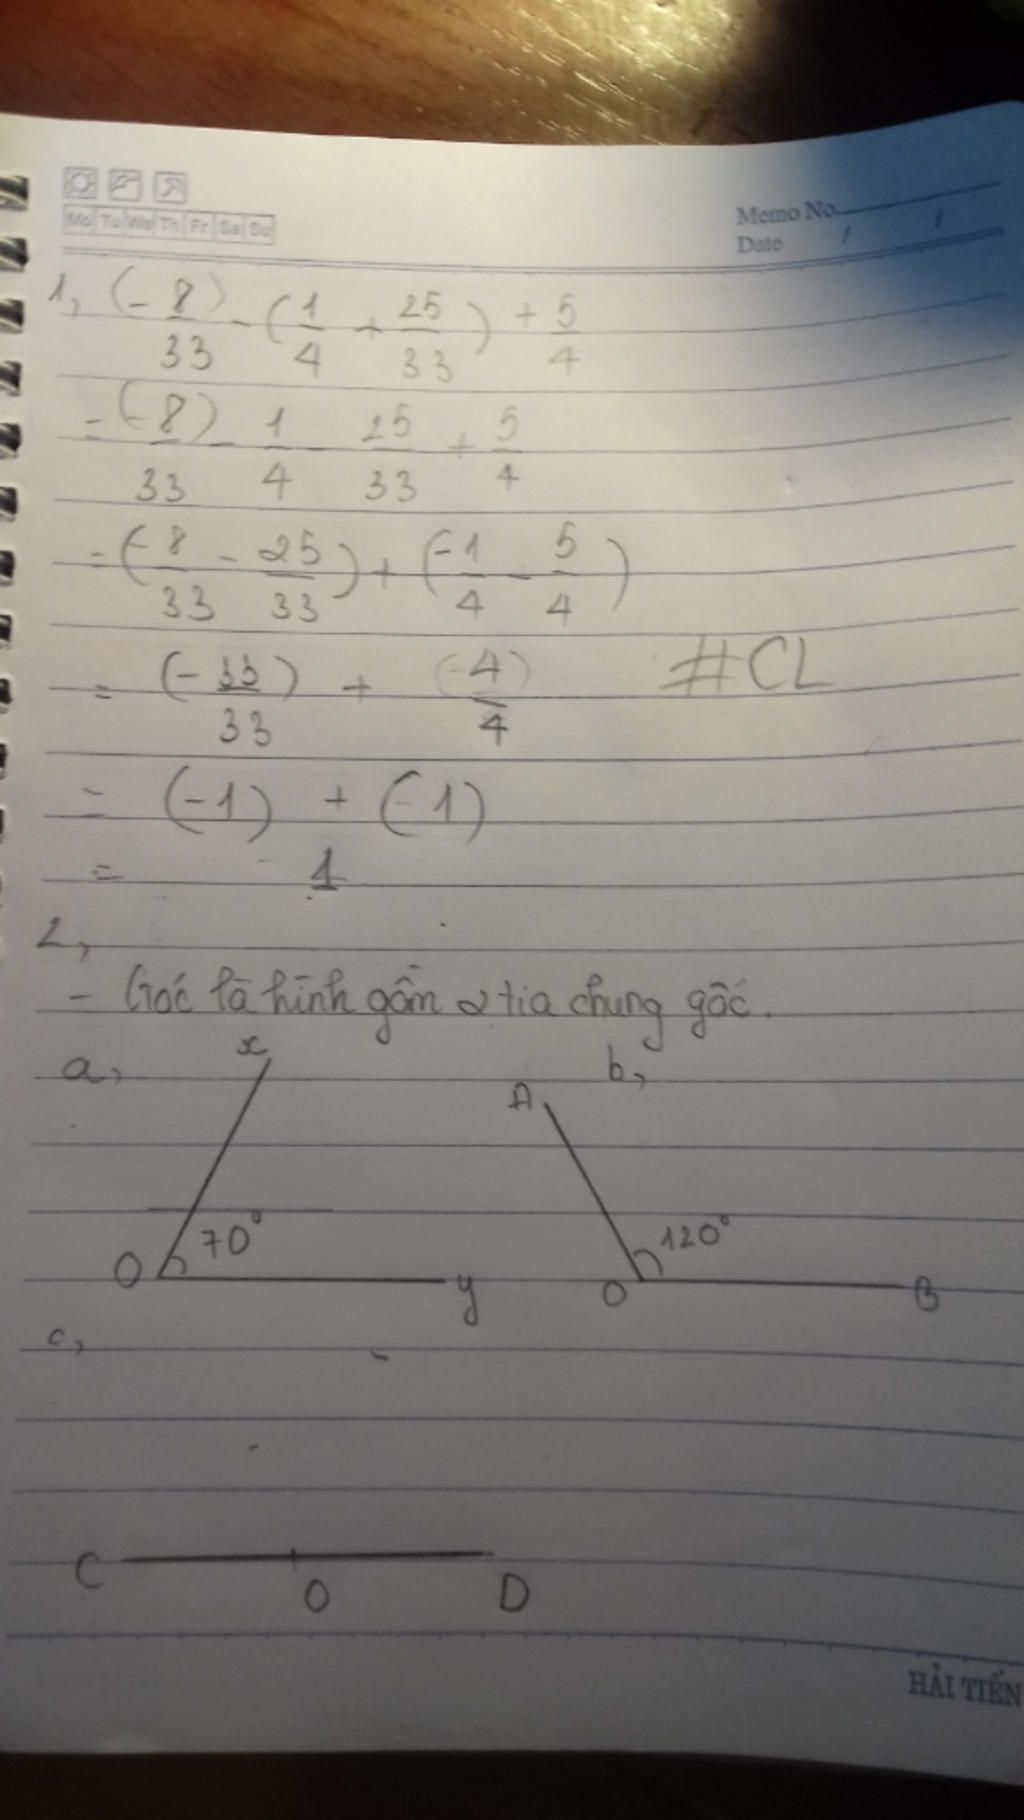 Mo Tu We Th Fr Sa Su
Memo No.
Date / /
1, (-8)/33 - (1/4 + 25/33) + 5/4
= (-8)/33 - 1/4 25/33 + 5/4
= (-8/33 - 25/33) + (-1/4 - 5/4)
= (-33)/33 + (-4)/4 #CL
= (-1) + (-1)
= 1
2,
- Góc là hình gồm 2 tia chung gốc.
a, x b,
A
70° 120°
O y O B
c,
C O D
HẢI TIẾN